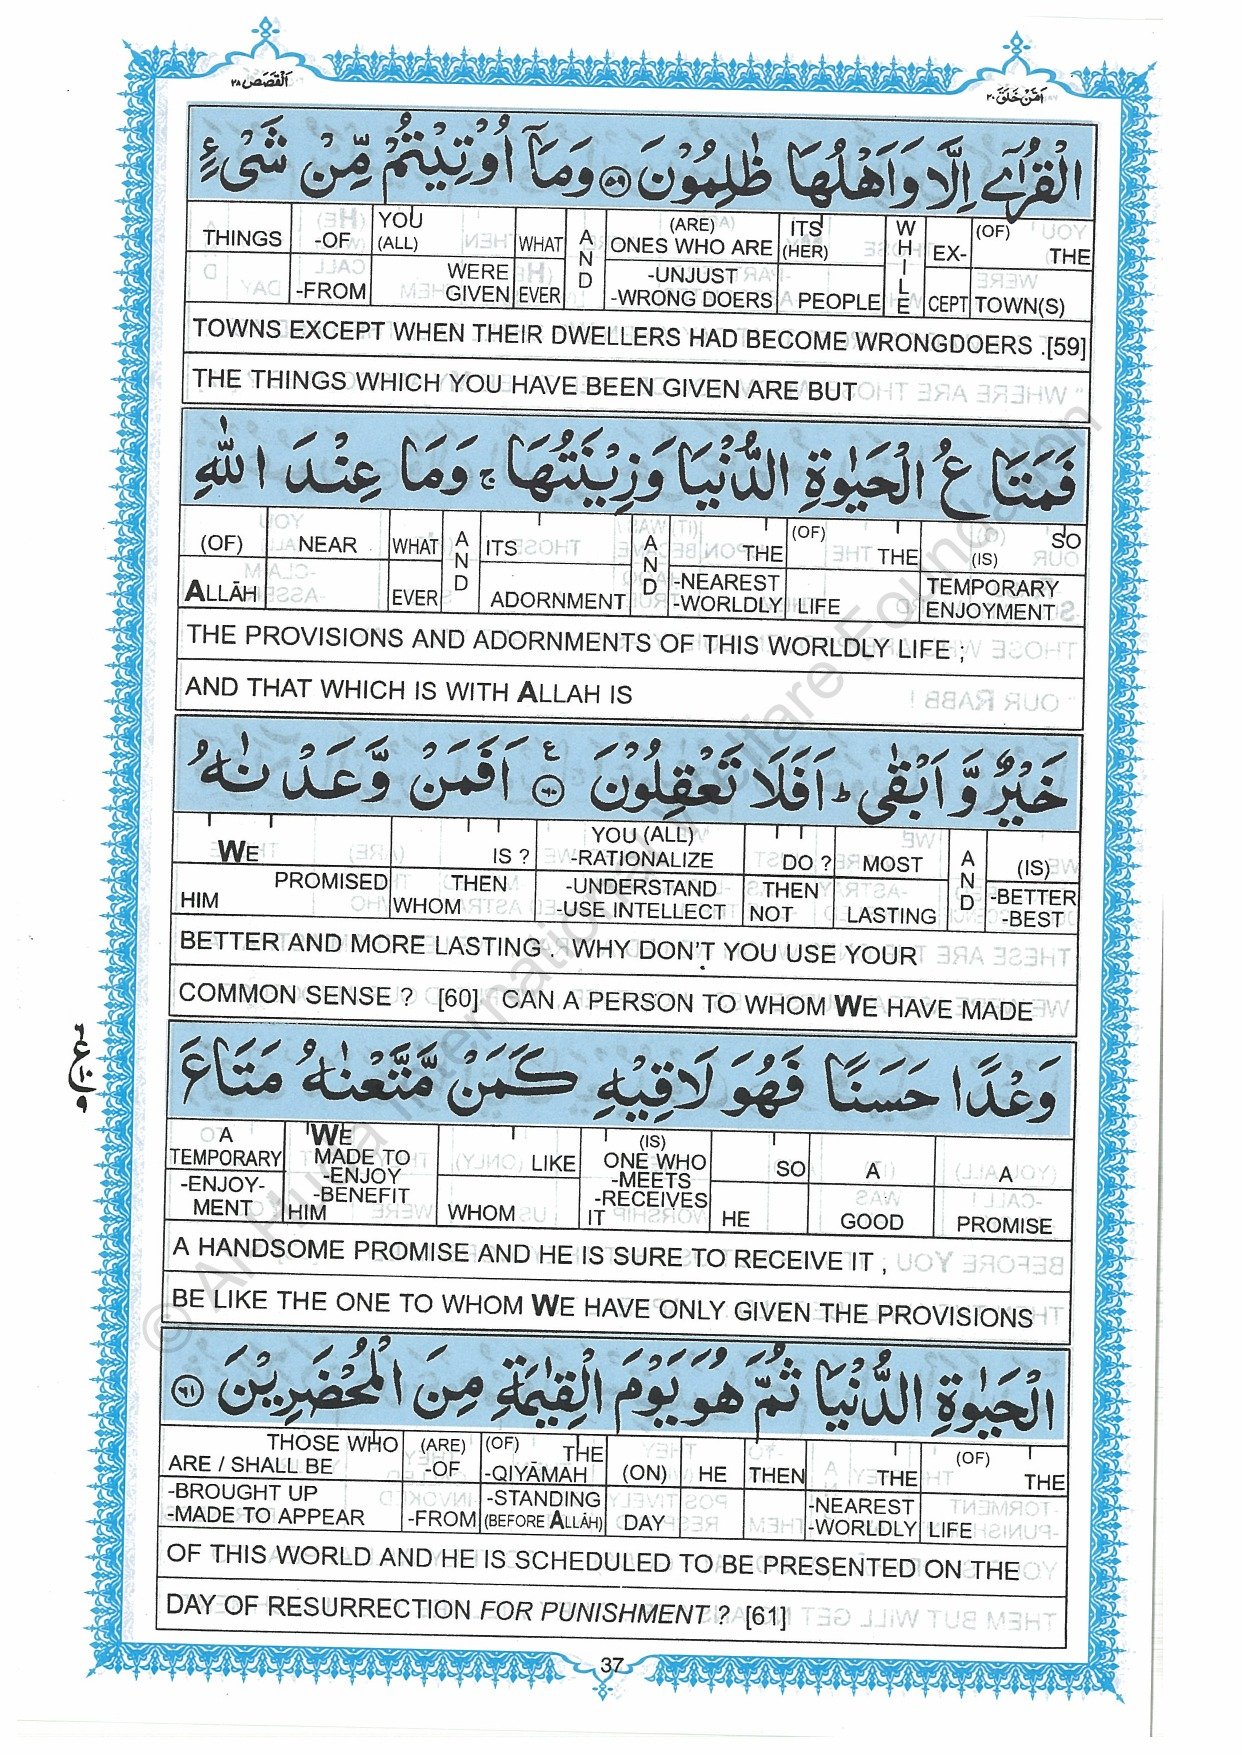 القصص ٢٨
امن خلق ٢٠
الْقُرٰٓى اِلَّا وَاَهْلُهَا ظٰلِمُوْنَ ۝٥٩ وَمَآ اُوْتِيْتُمْ مِّنْ شَىْءٍ
THINGS -OF YOU (ALL) WHAT AND (ARE) ONES WHO ARE ITS (HER) WHILE EX- (OF) THE
-FROM WERE GIVEN EVER -UNJUST -WRONG DOERS PEOPLE CEPT TOWN(S)
TOWNS EXCEPT WHEN THEIR DWELLERS HAD BECOME WRONGDOERS .[59]
THE THINGS WHICH YOU HAVE BEEN GIVEN ARE BUT
فَمَتَاعُ الْحَيٰوةِ الدُّنْيَا وَزِيْنَتُهَا ۚ وَمَا عِنْدَ اللّٰهِ
(OF) NEAR WHAT AND ITS AND THE (OF) THE (IS) SO
ALLĀH EVER ADORNMENT -NEAREST -WORLDLY LIFE TEMPORARY ENJOYMENT
THE PROVISIONS AND ADORNMENTS OF THIS WORLDLY LIFE ;
AND THAT WHICH IS WITH ALLAH IS
خَيْرٌ وَّاَبْقٰى ؕ اَفَلَا تَعْقِلُوْنَ ۝٦٠ ع اَفَمَنْ وَّعَدْنٰهُ
WE IS ? YOU (ALL) -RATIONALIZE DO ? MOST AND (IS)
HIM PROMISED THEN WHOM -UNDERSTAND -USE INTELLECT THEN NOT LASTING -BETTER -BEST
BETTER AND MORE LASTING . WHY DON'T YOU USE YOUR
COMMON SENSE ? [60] CAN A PERSON TO WHOM WE HAVE MADE
وَعْدًا حَسَنًا فَهُوَ لَاقِيْهِ كَمَنْ مَّتَّعْنٰهُ مَتَاعَ
A TEMPORARY WE MADE TO LIKE (IS) ONE WHO SO A A
-ENJOY- MENT -ENJOY -BENEFIT HIM WHOM -MEETS -RECEIVES IT HE GOOD PROMISE
A HANDSOME PROMISE AND HE IS SURE TO RECEIVE IT ,
BE LIKE THE ONE TO WHOM WE HAVE ONLY GIVEN THE PROVISIONS
الْحَيٰوةِ الدُّنْيَا ثُمَّ هُوَ يَوْمَ الْقِيٰمَةِ مِنَ الْمُحْضَرِيْنَ ۝٦١
THOSE WHO ARE / SHALL BE (ARE) -OF (OF) THE -QIYĀMAH (ON) HE THEN THE (OF) THE
-BROUGHT UP -MADE TO APPEAR -FROM -STANDING (BEFORE ALLĀH) DAY -NEAREST -WORLDLY LIFE
OF THIS WORLD AND HE IS SCHEDULED TO BE PRESENTED ON THE
DAY OF RESURRECTION FOR PUNISHMENT ? [61]
37